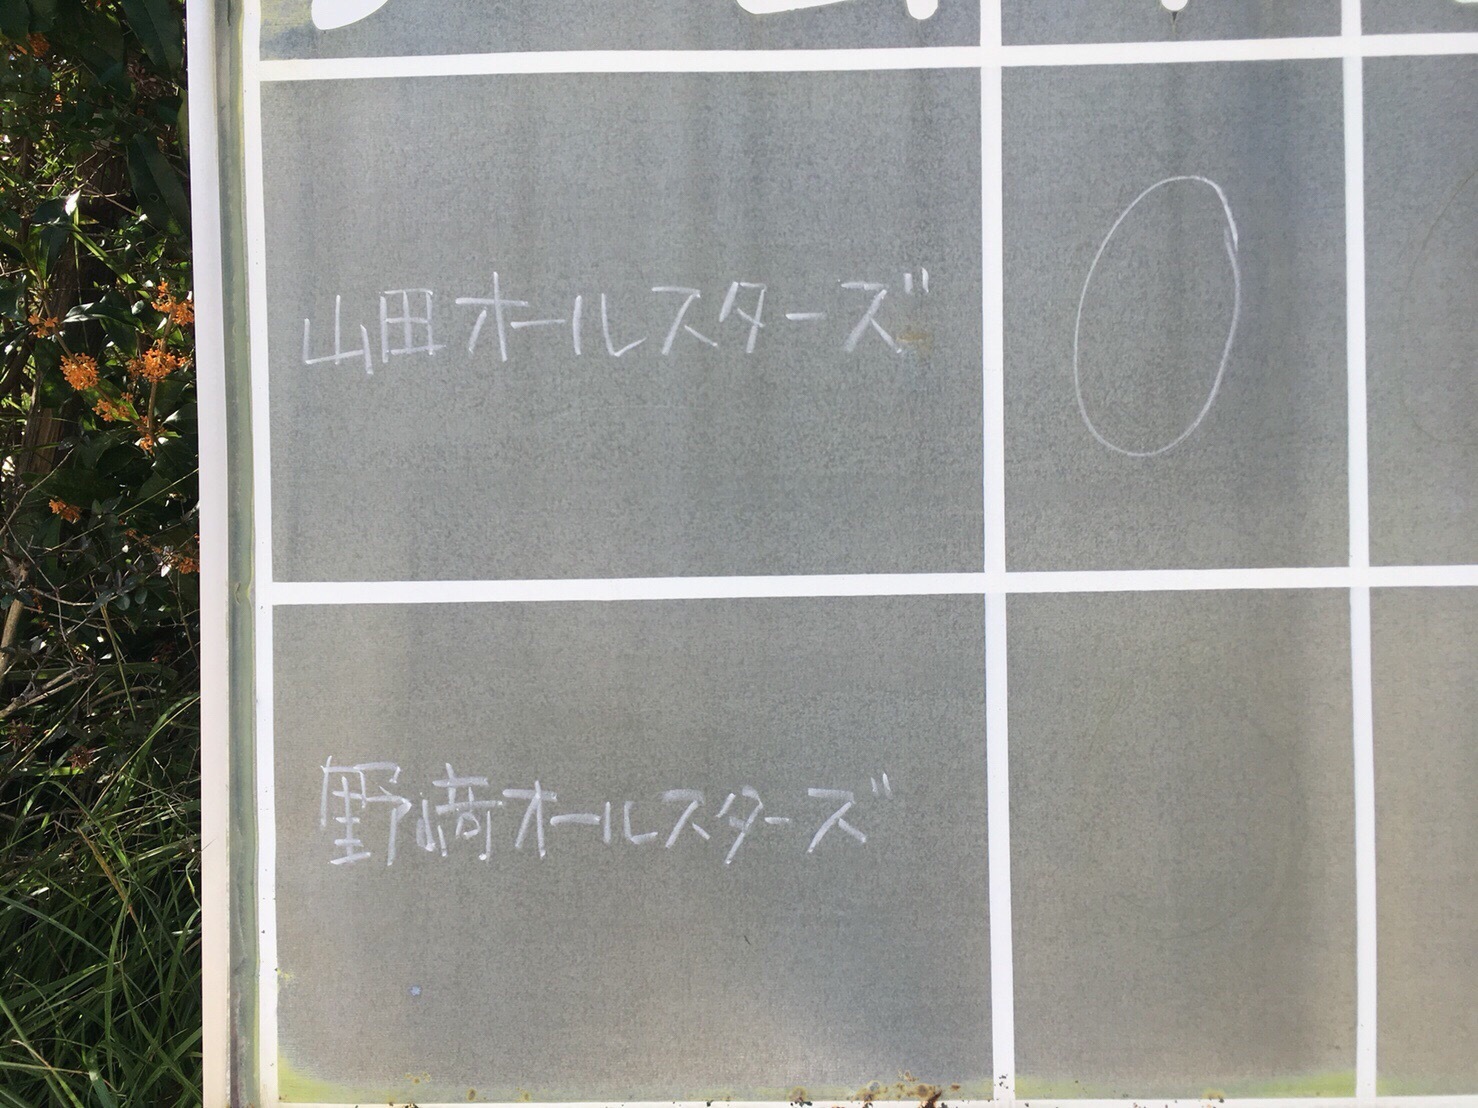 山田オールスターズ 0
野﨑オールスターズ